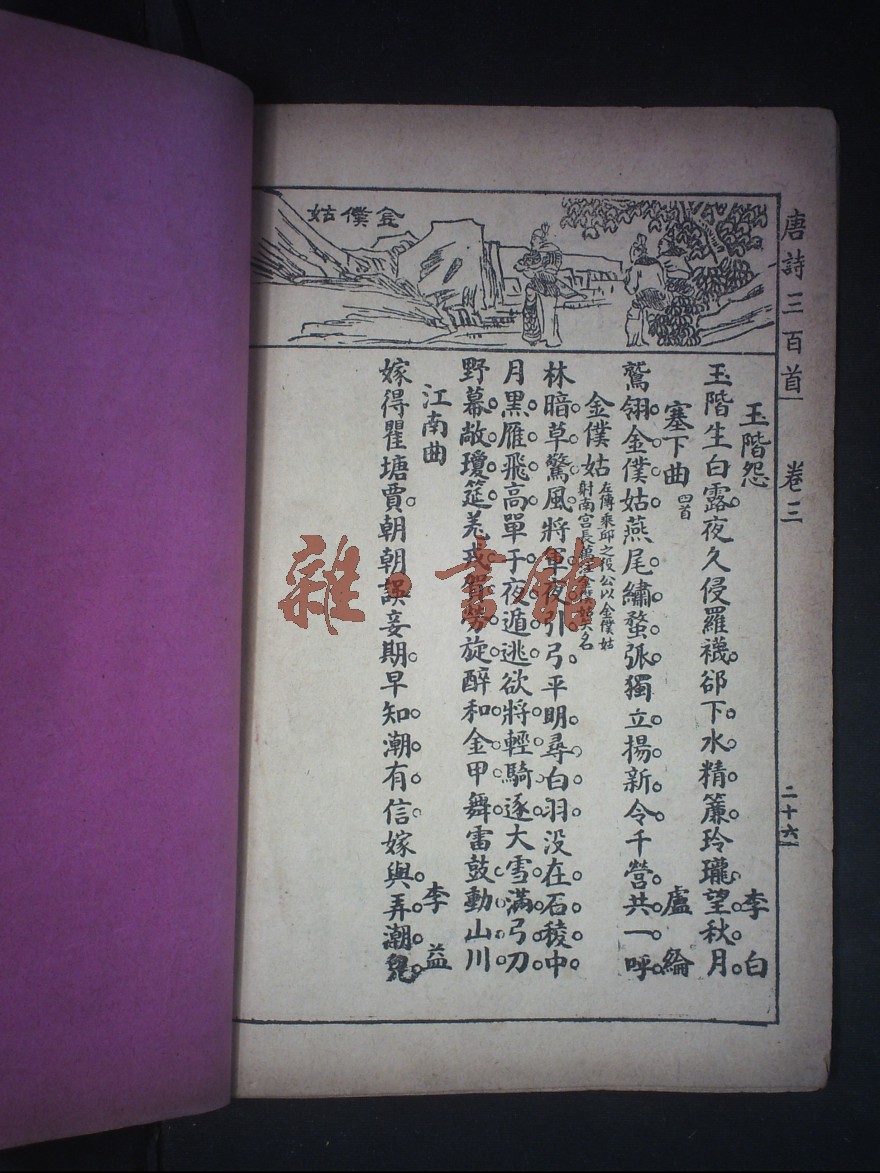 唐詩三百首
卷三
二十六
金僕姑
玉階怨
李白
玉階生白露。夜久侵羅襪。卻下水精簾。玲瓏望秋月。
塞下曲 四首
盧綸
鷲翎金僕姑。燕尾繡蝥弧。獨立揚新令。千營共一呼。
金僕姑
左傳乘邱之役公以金僕姑
射南宮長萬
矢名
林暗草驚風。將軍夜引弓。平明尋白羽。沒在石稜中。
月黑雁飛高。單于夜遁逃。欲將輕騎逐。大雪滿弓刀。
野幕敞瓊筵。羌戎賀勞旋。醉和金甲舞。雷鼓動山川
江南曲
李益
嫁得瞿塘賈。朝朝誤妾期。早知潮有信。嫁與弄潮兒。
雜·書舘